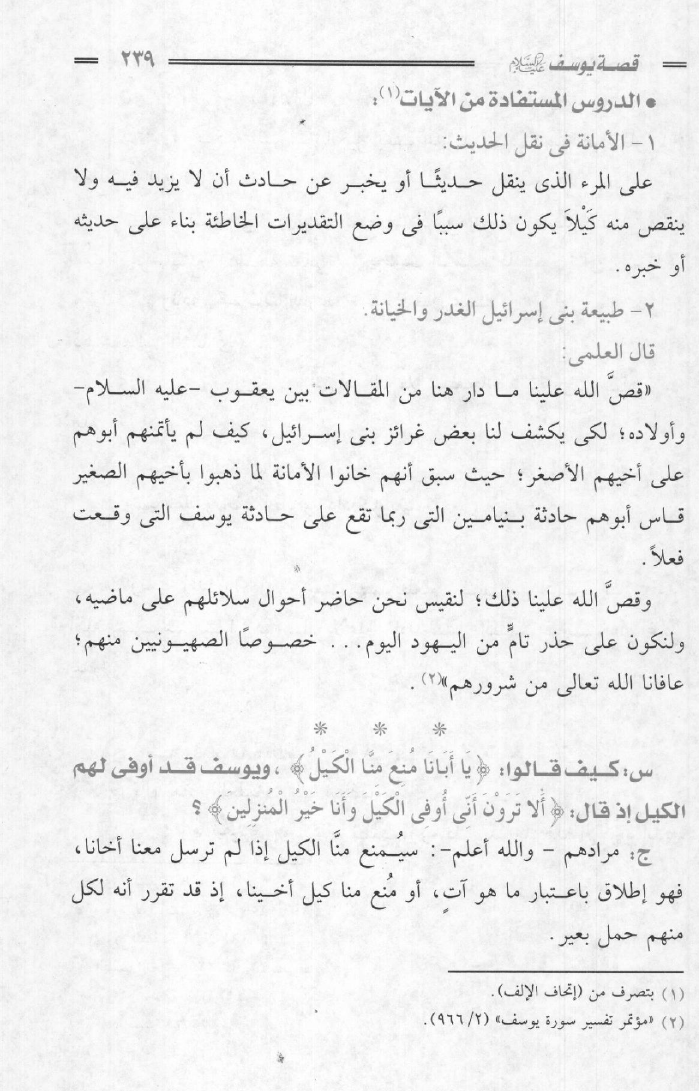 قصة يوسف عليه السلام ٢٣٩
• الدروس المستفادة من الآيات(١):
١- الأمانة فى نقل الحديث:
على المرء الذى ينقل حديثًا أو يخبر عن حادث أن لا يزيد فيه ولا
ينقص منه كَيْلاَ يكون ذلك سببًا فى وضع التقديرات الخاطئة بناء على حديثه
أو خبره.
٢- طبيعة بنى إسرائيل الغدر والخيانة.
قال العلمى:
«قصَّ الله علينا ما دار هنا من المقالات بين يعقوب -عليه السلام-
وأولاده؛ لكى يكشف لنا بعض غرائز بنى إسرائيل، كيف لم يأتمنهم أبوهم
على أخيهم الأصغر؛ حيث سبق أنهم خانوا الأمانة لما ذهبوا بأخيهم الصغير
قاس أبوهم حادثة بنيامين التى ربما تقع على حادثة يوسف التى وقعت
فعلاً.
وقصَّ الله علينا ذلك؛ لنقيس نحن حاضر أحوال سلائلهم على ماضيه،
ولنكون على حذر تامٍّ من اليهود اليوم... خصوصًا الصهيونيين منهم؛
عافانا الله تعالى من شرورهم»(٢).
* * *
س: كيف قالوا: ﴿يَا أَبَانَا مُنِعَ مِنَّا الْكَيْلُ﴾، ويوسف قد أوفى لهم
الكيل إذ قال: ﴿أَلا تَرَوْنَ أَنِّى أُوفِى الْكَيْلَ وَأَنَا خَيْرُ الْمُنزِلِينَ﴾؟
ج: مرادهم - والله أعلم-: سيُمنع منَّا الكيل إذا لم ترسل معنا أخانا،
فهو إطلاق باعتبار ما هو آتٍ، أو مُنع منا كيل أخينا، إذ قد تقرر أنه لكل
منهم حمل بعير.
(١) بتصرف من (إتحاف الإلف).
(٢) «مؤتمر تفسير سورة يوسف» (٢/٩٦٦).